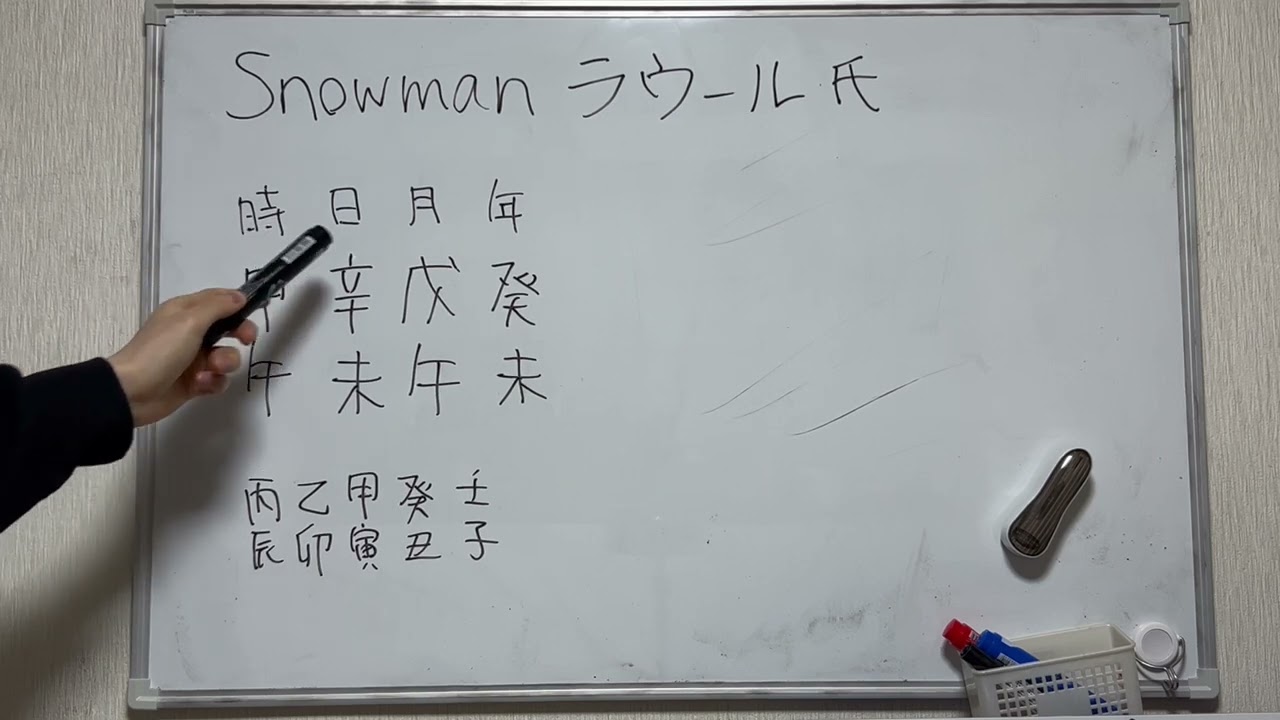 Snowman ラウール 氏
時 日 月 年
甲 辛 戊 癸
午 未 午 未
丙 乙 甲 癸 壬
辰 卯 寅 丑 子